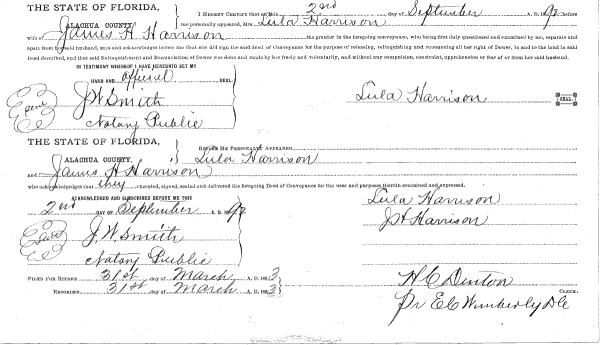 THE STATE OF FLORIDA, I HEREBY CERTIFY that on this 2nd day of September A. D. 18 92 before
ALACHUA COUNTY. me personally appeared, Mrs. Lula Harrison
wife of James H. Harrison the grantor in the foregoing conveyance, who being first duly questioned and examined by me, separate and
apart from her said husband, says and acknowledges before me that she did sign the said deed of Conveyance for the purpose of releasing, relinquishing and renouncing all her right of Dower, in and to the land in said
Deed described, and that said Relinquishment and Renunciation of Dower was done and made by her freely and voluntarily, and without any compulsion, constraint, apprehension or fear of or from her said husband.
IN TESTIMONY WHEREOF I HAVE HEREUNTO SET MY
HAND AND official SEAL
Seal J. W. Smith Lula Harrison SEAL.
Notary Public
THE STATE OF FLORIDA, BEFORE ME PERSONALLY APPEARED
ALACHUA COUNTY. Lula Harrison
and James H Harrison
who acknowledges that they executed, signed, sealed and delivered the foregoing Deed of Conveyance for the uses and purposes therein contained and expressed.
ACKNOWLEDGED AND SUBSCRIBED BEFORE ME THIS Lula Harrison
2nd DAY OF September A. D. 18 92 J H Harrison
Seal J. W. Smith
Notary Public
FILED FOR RECORD 31st day of March A. D. 189 3 H C Denton
RECORDED 31st day of March A. D. 189 3 CLERK.
Pr E C Wimberly D C